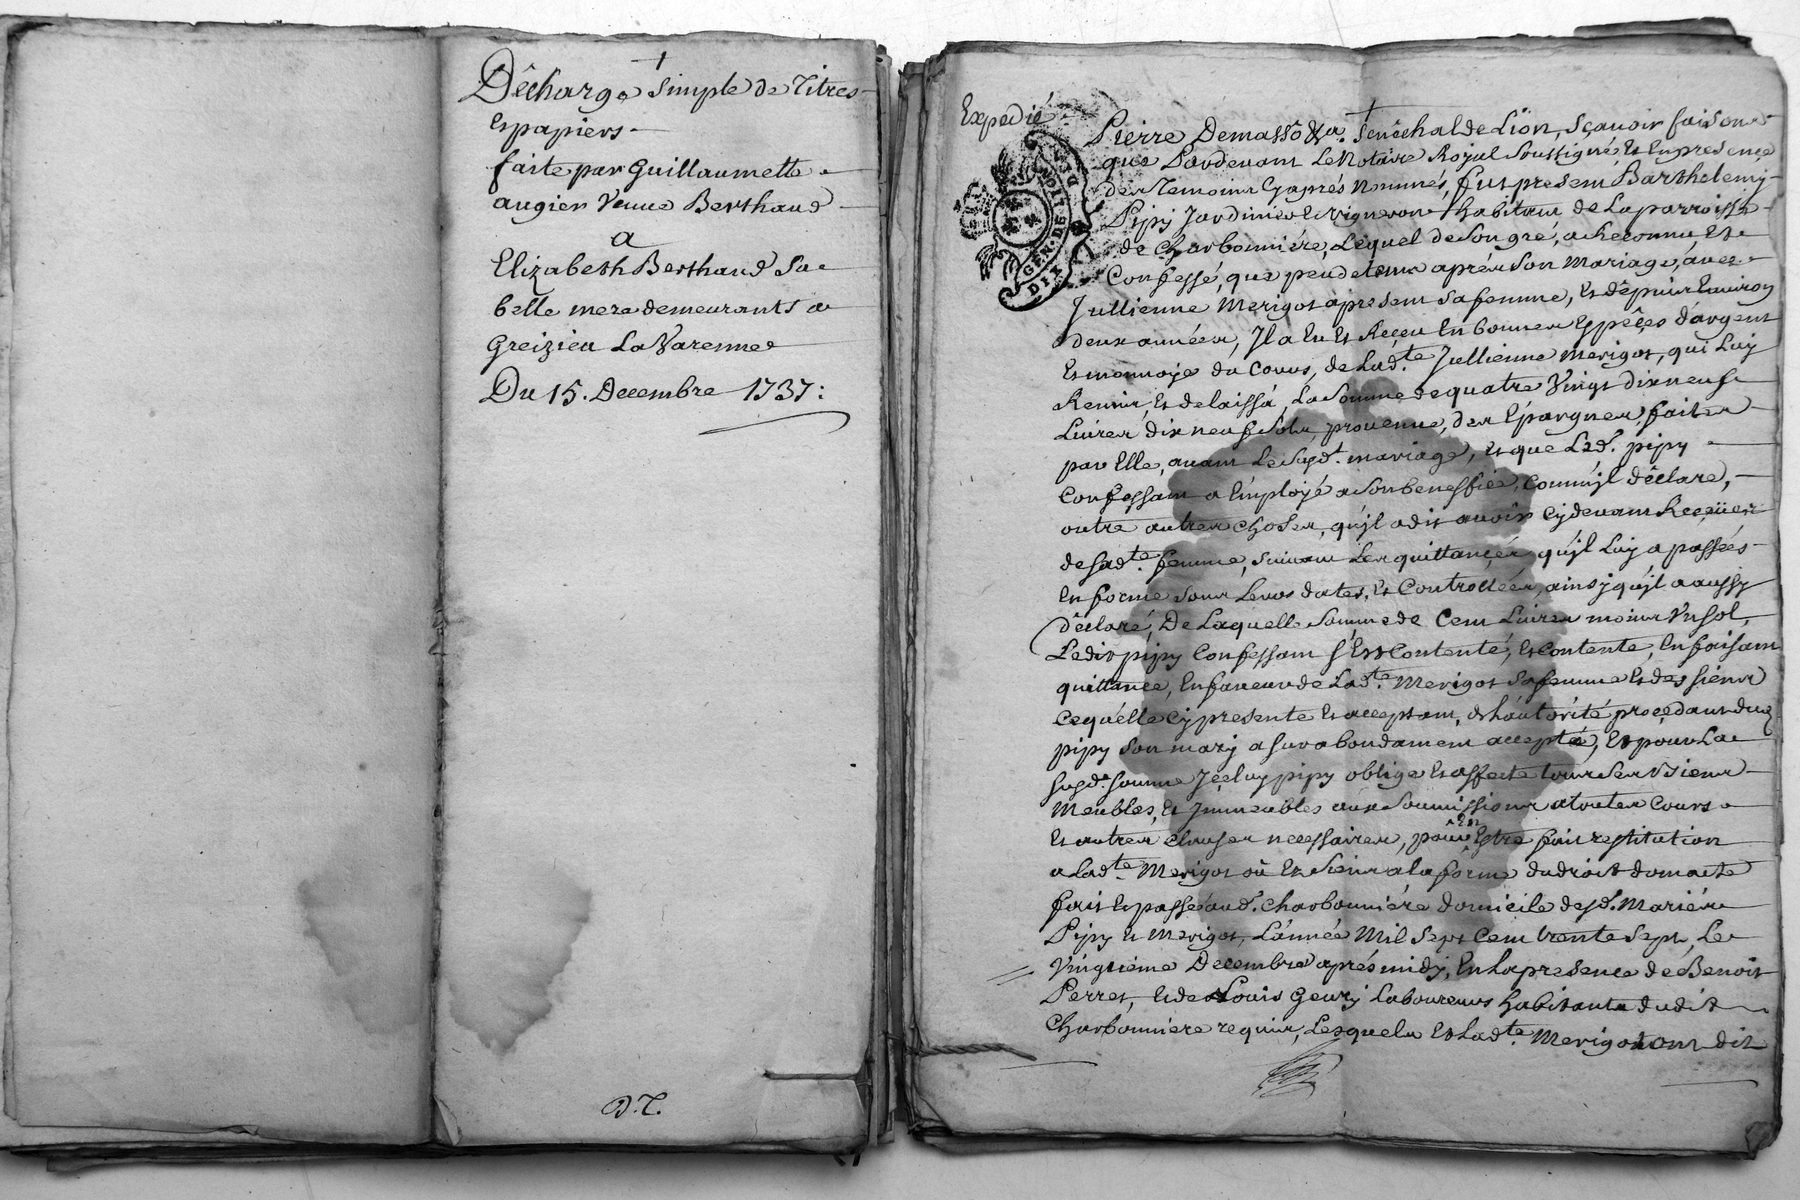 Dêcharge simple de Titres
Et papiers
faite par Guillaumette
augier Veuve Berthaud
a
Elizabeth Berthaud Sa
belle mere demeurants a
Greizieu La Varenne
Du 15. Decembre 1737:
D.T.
Expedié
GEN. DE LION
DIX
Pierre Demassô &a. senêchal de Lïon, sçavoir faisons
que Pardevant Le Notaire Royal soussigné et En presence
des Temoins Cyaprés Nommés, fut present Barthelemy
Pipy Jardinier et vigneron habitant de La parroisse
de Charbonniére, Lequel de son gré, a Reconnu, Et
Confessé, que peu de tems aprés son Mariage, avec
Jullienne Merigot apresent sa femme, Et dêpuis Environ
deux années, Il a Eu Et Reçeu En bonnes Espêçes d'argent
Et monnoye du Cours, de Lad.te Jullienne Merigot, qui Luy
Remis, Et delaissá, La somme de quatre Vingt dix neuf
Livres dix neuf sols, provenue, des Epargnes, faites
par Elle, avant Le susd.t mariage, Et que Led. pipy
Confessant a Employé a son beneffice, Comm'il dêclare,
outre autres choses, qu'il a dit avoir Cydevant Reçeües
de sad.te femme, suivant Les quittançes qu'il Luy a passées
En forme sous Leurs dates, Et Controllées, ainsy qu'il a aussy
dêclaré, De Laquelle somme de Cent Livres moins Un sol,
Ledit pipy Confessant s'Est Contenté, Et Contente, En faisant
quittance, En faveur de Lad.te Merigot sa femme Et des siens
Ce qu'elle Cy presente Et acceptant, de L'autorité proçedant dud.
pipy son mary a surabondament accepté, Et pour La
susd.e somme Iceluy pipy oblige Et affecte tous ses Biens
Meubles, Et Immeubles aux soumissions a toutes Cours
Et autres clauses necessaires, pour
En
Estre fait restitution
a Lad.te Merigot où Et siens a la forme du droit dont acte
fait Et passé aud. Charbonniére domicile desd. Mariés
Pipy Et Merigot, L'année Mil Sept Cent trente sept, Le
Vingtiéme Decembre aprés midy, En La presence de Benoit
Perret, Et de Louis Geury Laboureurs habitants dudit
Charbonniere requis, Lesquels Et Lad.te Merigot ont dit